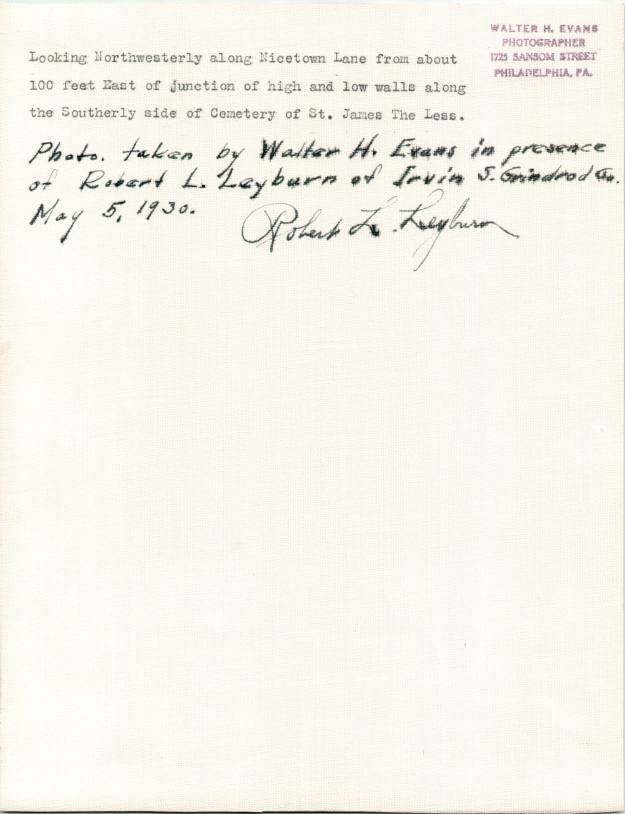 WALTER H. EVANS
PHOTOGRAPHER
1725 SANSOM STREET
PHILADELPHIA, PA.
Looking Northwesterly along Nicetown Lane from about
100 feet East of junction of high and low walls along
the Southerly side of Cemetery of St. James The Less.
Photo. taken by Walter H. Evans in presence
of Robert L. Leyburn of Irvin S. Grindrod Co.
May 5, 1930.
Robert L. Leyburn